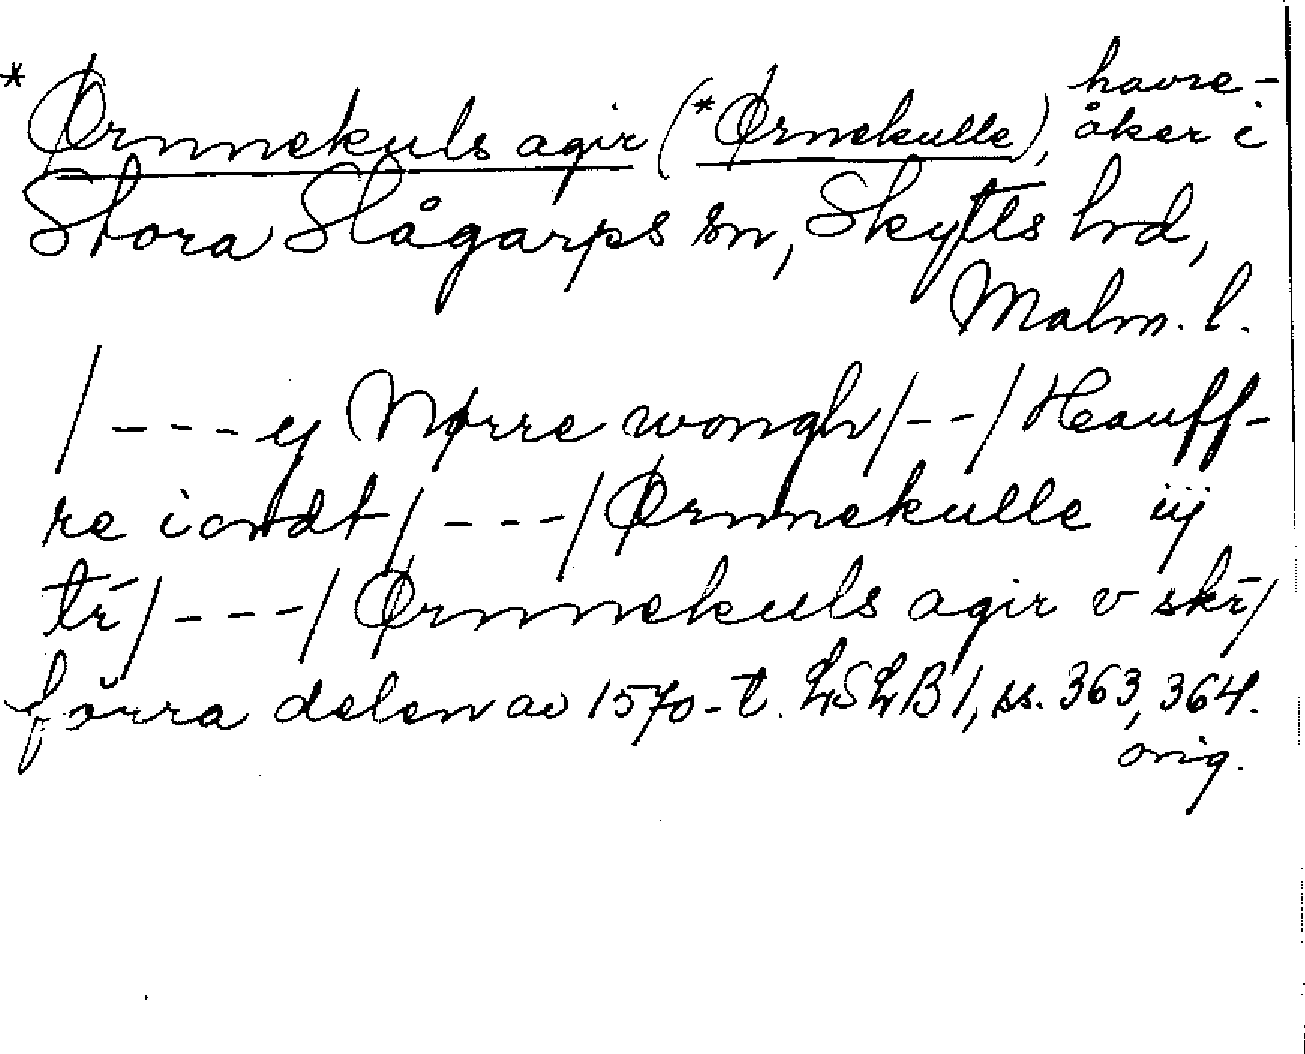 *Ørnnekuls agir (*Ørnekulle), havre-
åker i
Stora Slågarps sn, Skytts hd,
Malm. l.
/---ej Nørre wongh/--/Hauff-
re iordt/---/Ørnnekulle iij
tr̄/---/Ørnnekuls agir v skr̄/
förra delen av 1570-t. LSLB 1, ss. 363, 364.
orig.